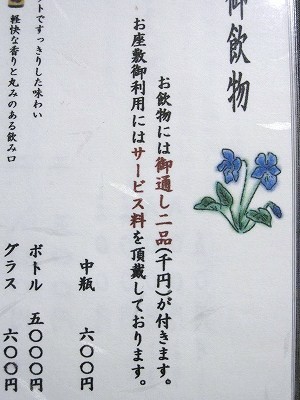 御飲物
お飲物には御通し二品(千円)が付きます。
お座敷御利用にはサービス料を頂戴しております。
中瓶 六〇〇円
ットですっきりした味わい
軽快な香りと丸みのある飲み口
ボトル 五〇〇〇円
グラス 六〇〇円